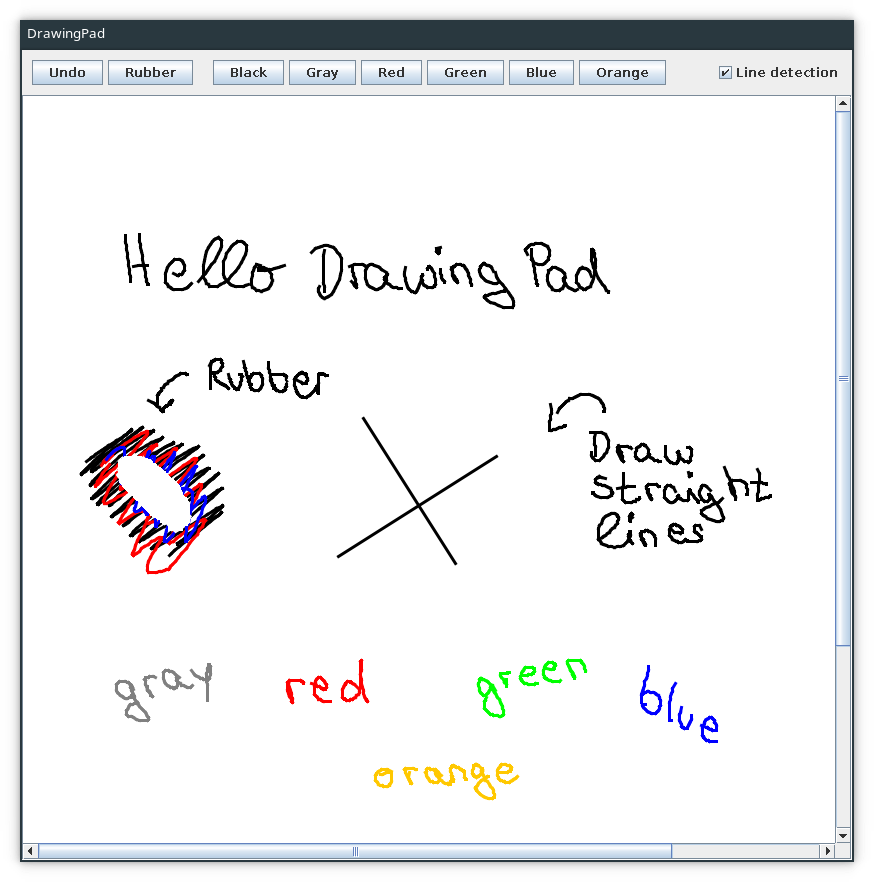 DrawingPad
Undo Rubber Black Gray Red Green Blue Orange Line detection
Hello Drawing Pad
Rubber
Draw
straight
lines
gray red green blue
orange